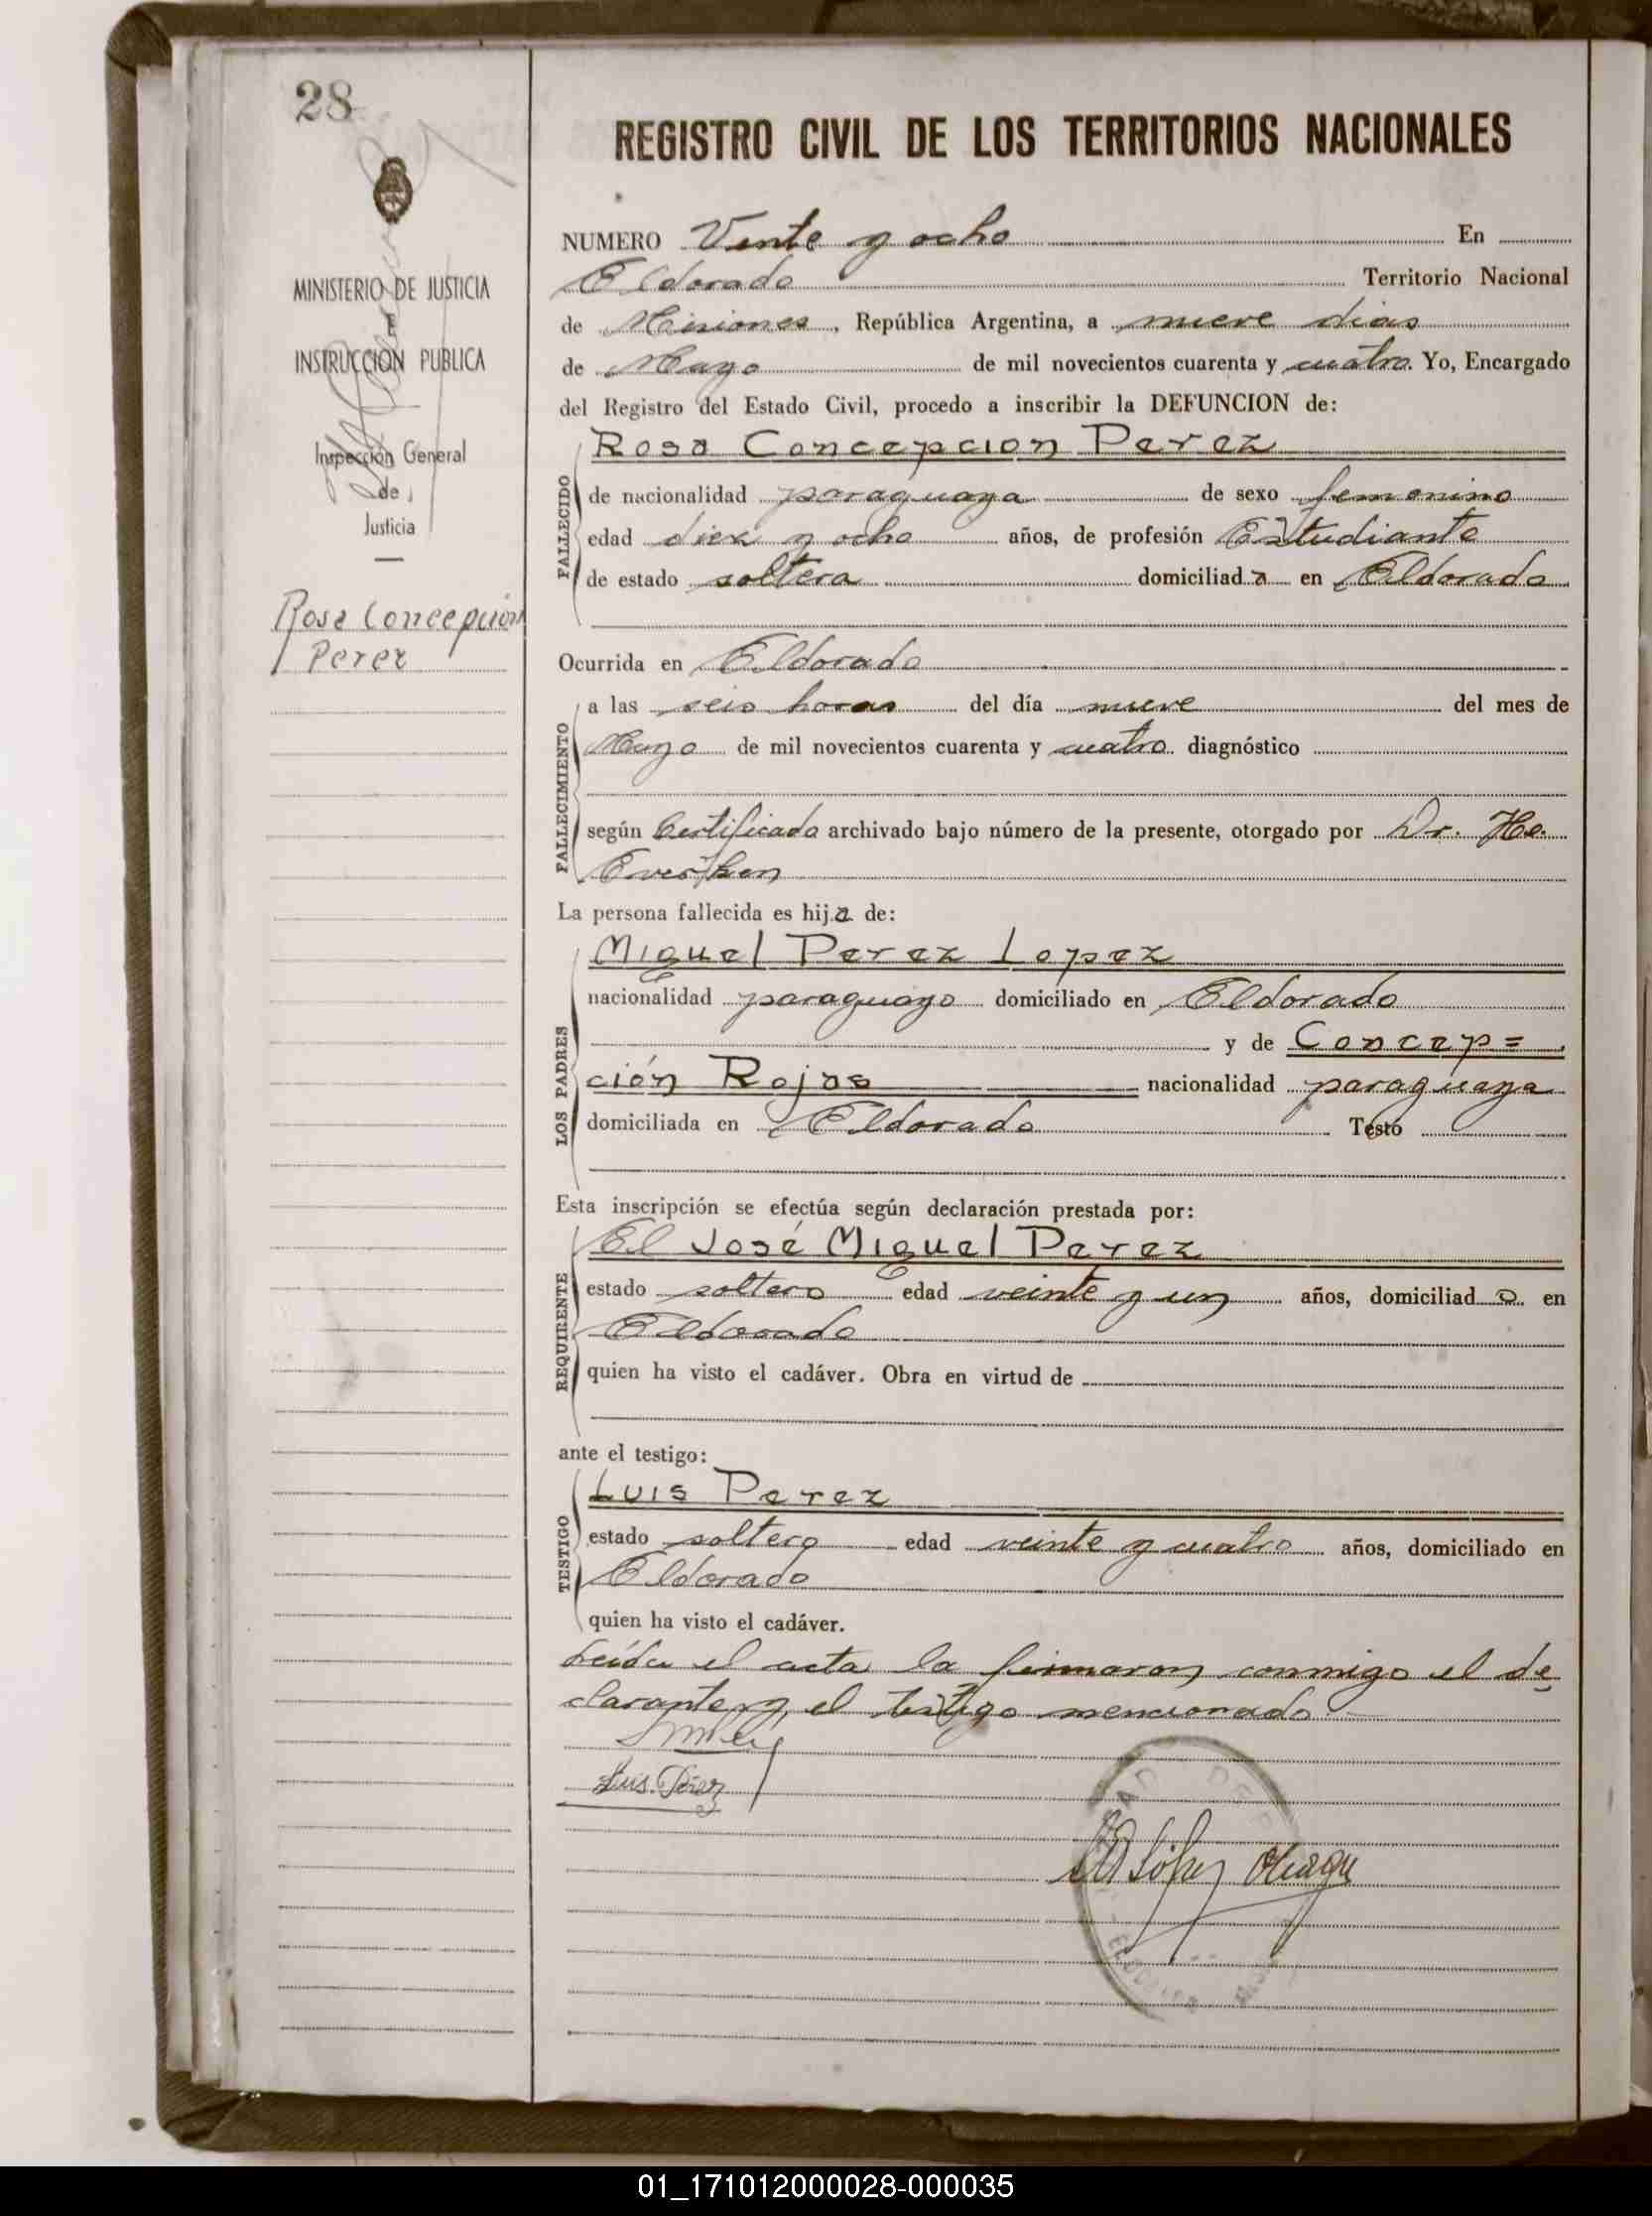 28
MINISTERIO DE JUSTICIA
INSTRUCCION PUBLICA
Inspección General
de
Justicia
Rosa Concepción
Perez
REGISTRO CIVIL DE LOS TERRITORIOS NACIONALES
NUMERO Vente y ocho En
Eldorado Territorio Nacional
de Misiones, República Argentina, a nueve dias
de Mayo de mil novecientos cuarenta y cuatro. Yo, Encargado
del Registro del Estado Civil, procedo a inscribir la DEFUNCION de:
Rosa Concepcion Perez
FALLECIDO
de nacionalidad paraguaya de sexo femenino
edad diez y ocho años, de profesión Estudiante
de estado soltera domiciliada en Eldorado
Ocurrida en Eldorado
FALLECIMIENTO
a las seis horas del día nueve del mes de
Mayo de mil novecientos cuarenta y cuatro diagnóstico
según Certificado archivado bajo número de la presente, otorgado por Dr.
La persona fallecida es hija de:
LOS PADRES
Miguel Perez Lopez
nacionalidad paraguayo domiciliado en Eldorado
y de Concep=
ción Rojas nacionalidad paraguaya
domiciliada en Eldorado Testó
Esta inscripción se efectúa según declaración prestada por:
REQUIRENTE
El José Miguel Perez
estado soltero edad veinte y un años, domiciliado en
Eldorado
quien ha visto el cadáver. Obra en virtud de
ante el testigo:
TESTIGO
Luis Perez
estado soltero edad veinte y cuatro años, domiciliado en
Eldorado
quien ha visto el cadáver.
Leída el acta la firmaron conmigo el de
clarante y el testigo mencionado
Luis Pérez
01_171012000028-000035